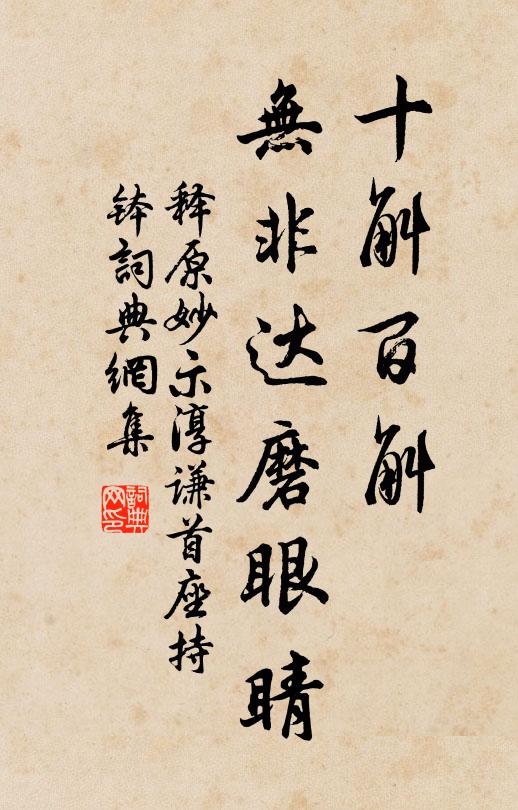 十斛百斛
無非达磨眼睛
释原妙示淳谦首座持
缽詞典網集
詞典网印